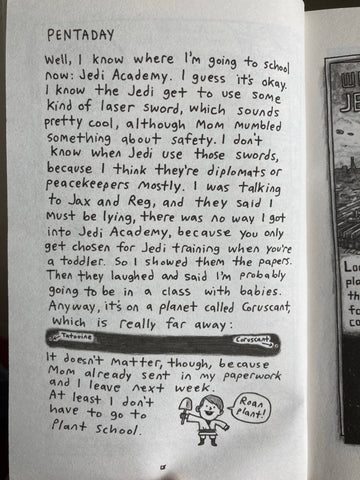 PENTADAY
Well, I know where I'm going to school
now: Jedi Academy. I guess it's okay.
I know the Jedi get to use some
kind of laser sword, which sounds
pretty cool, although Mom mumbled
something about safety. I don't
know when Jedi use those swords,
because I think they're diplomats or
peacekeepers mostly. I was talking
to Jax and Reg, and they said I
must be lying, there was no way I got
into Jedi Academy, because you only
get chosen for Jedi training when you're
a toddler. So I showed them the papers.
Then they laughed and said I'm probably
going to be in a class with babies.
Anyway, it's on a planet called Coruscant,
which is really far away:
Tatooine
Coruscant
It doesn't matter, though, because
Mom already sent in my paperwork
and I leave next week.
At least I don't
have to go to
Plant School.
Roan
plant!